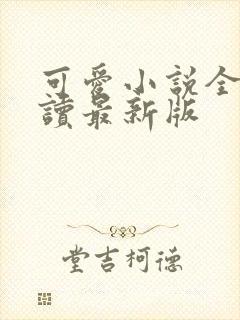 可愛小說全
讀最新版
堂吉柯德